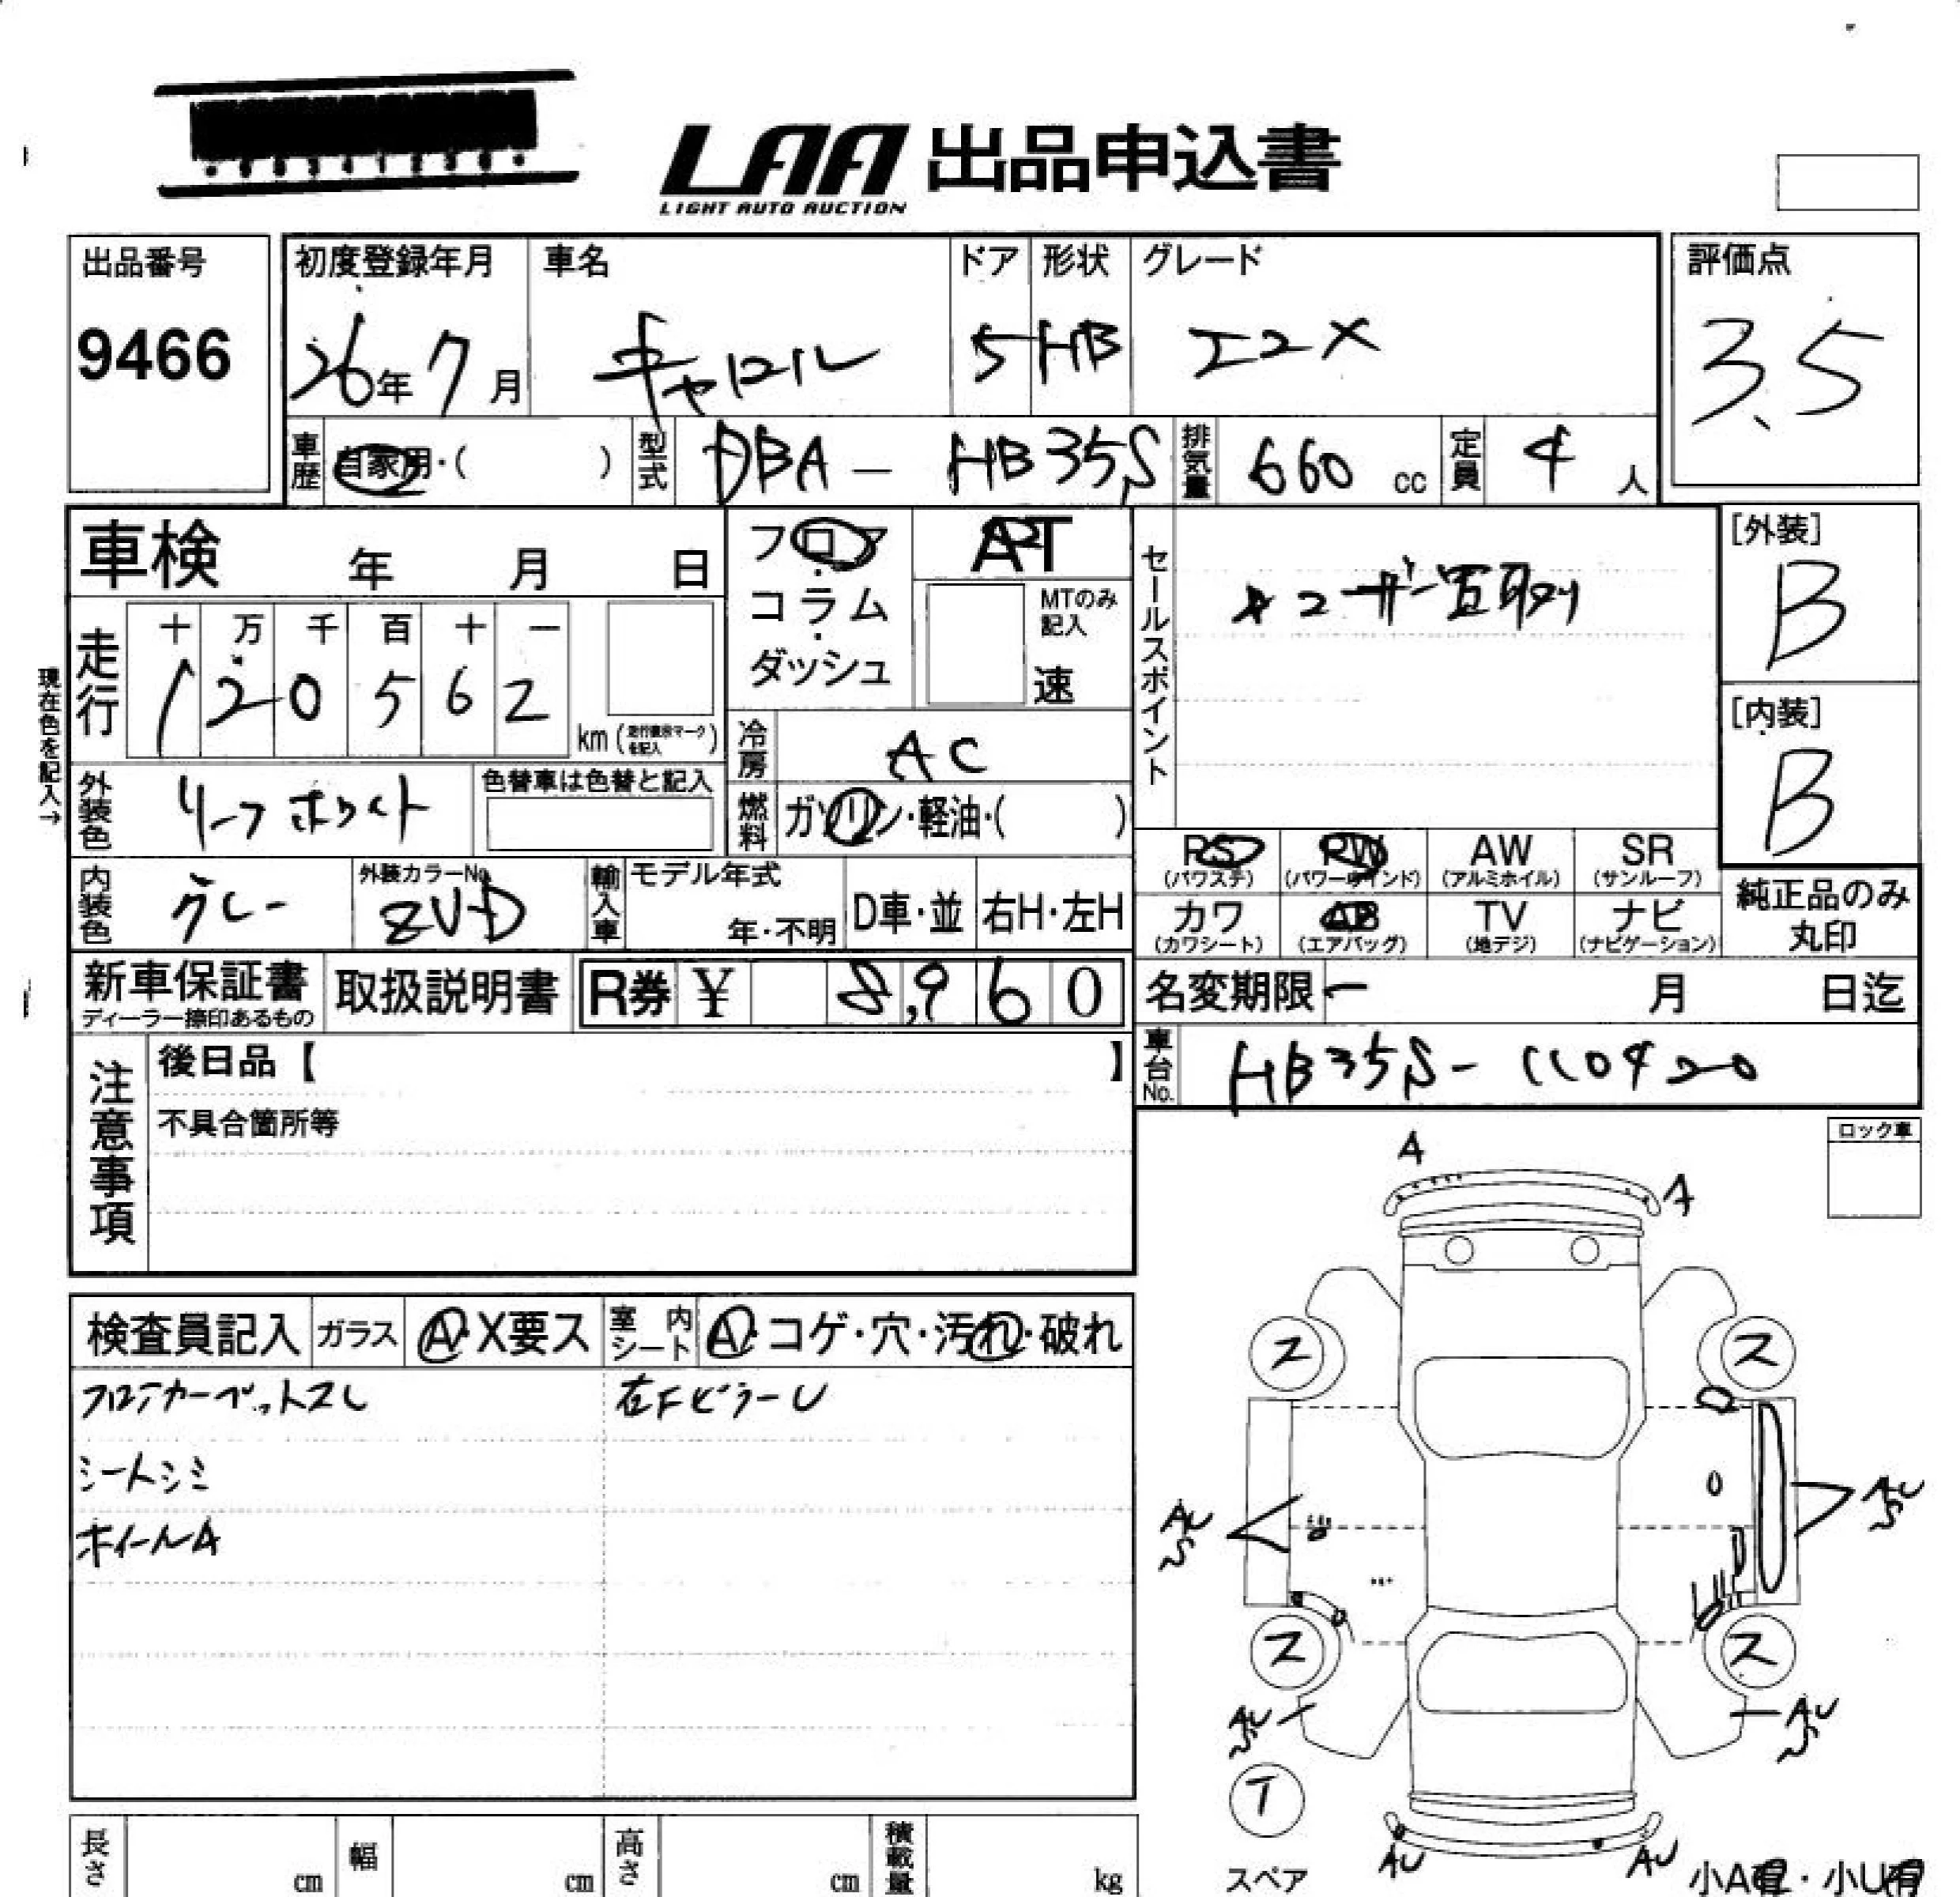 LAA 出品申込書
LIGHT AUTO AUCTION
出品番号
9466
初度登録年月
26年 7月
車名
キャロル
ドア
5
形状
HB
グレード
エコX
評価点
3.5
車歴 自家用・( )
型式 DBA - HB35S
排気量 660 cc
定員 4 人
車検 年 月 日
フロア・コラム・ダッシュ
AT
MTのみ記入
速
セールスポイント
ユーザー買取り
[外装]
B
[内装]
B
現在色を記入→
走行
十 万 千 百 十 一
1 2 0 5 6 2
km (走行表示マークを記入)
冷房 AC
燃料 ガソリン・軽油・( )
外装色 リーフホワイト
色替車は色替と記入
内装色 グレー
外装カラーNo.
ZVD
輸入車
モデル年式
年・不明
D車・並
右H・左H
PS
(パワステ)
PW
(パワーウインド)
AW
(アルミホイル)
SR
(サンルーフ)
カワ
(カワシート)
AB
(エアバッグ)
TV
(地デジ)
ナビ
(ナビゲーション)
純正品のみ
丸印
新車保証書
ディーラー捺印あるもの
取扱説明書
R券 ¥ 8,960
名変期限 ー 月 日迄
車台No. HB35S- 110420
注意事項
後日品【 】
不具合箇所等
ロック車
検査員記入
ガラス A・X要ス
室内シート A・コゲ・穴・汚れ・破れ
フロアカーペットスレ
右FピラーU
シートシミ
ホイールA
A
A
ス
ス
AU
S
AU
S
ス
ス
AU
S
AU
S
T
スペア
AU
AU
小A有・小U有
長さ cm
幅 cm
高さ cm
積載量 kg